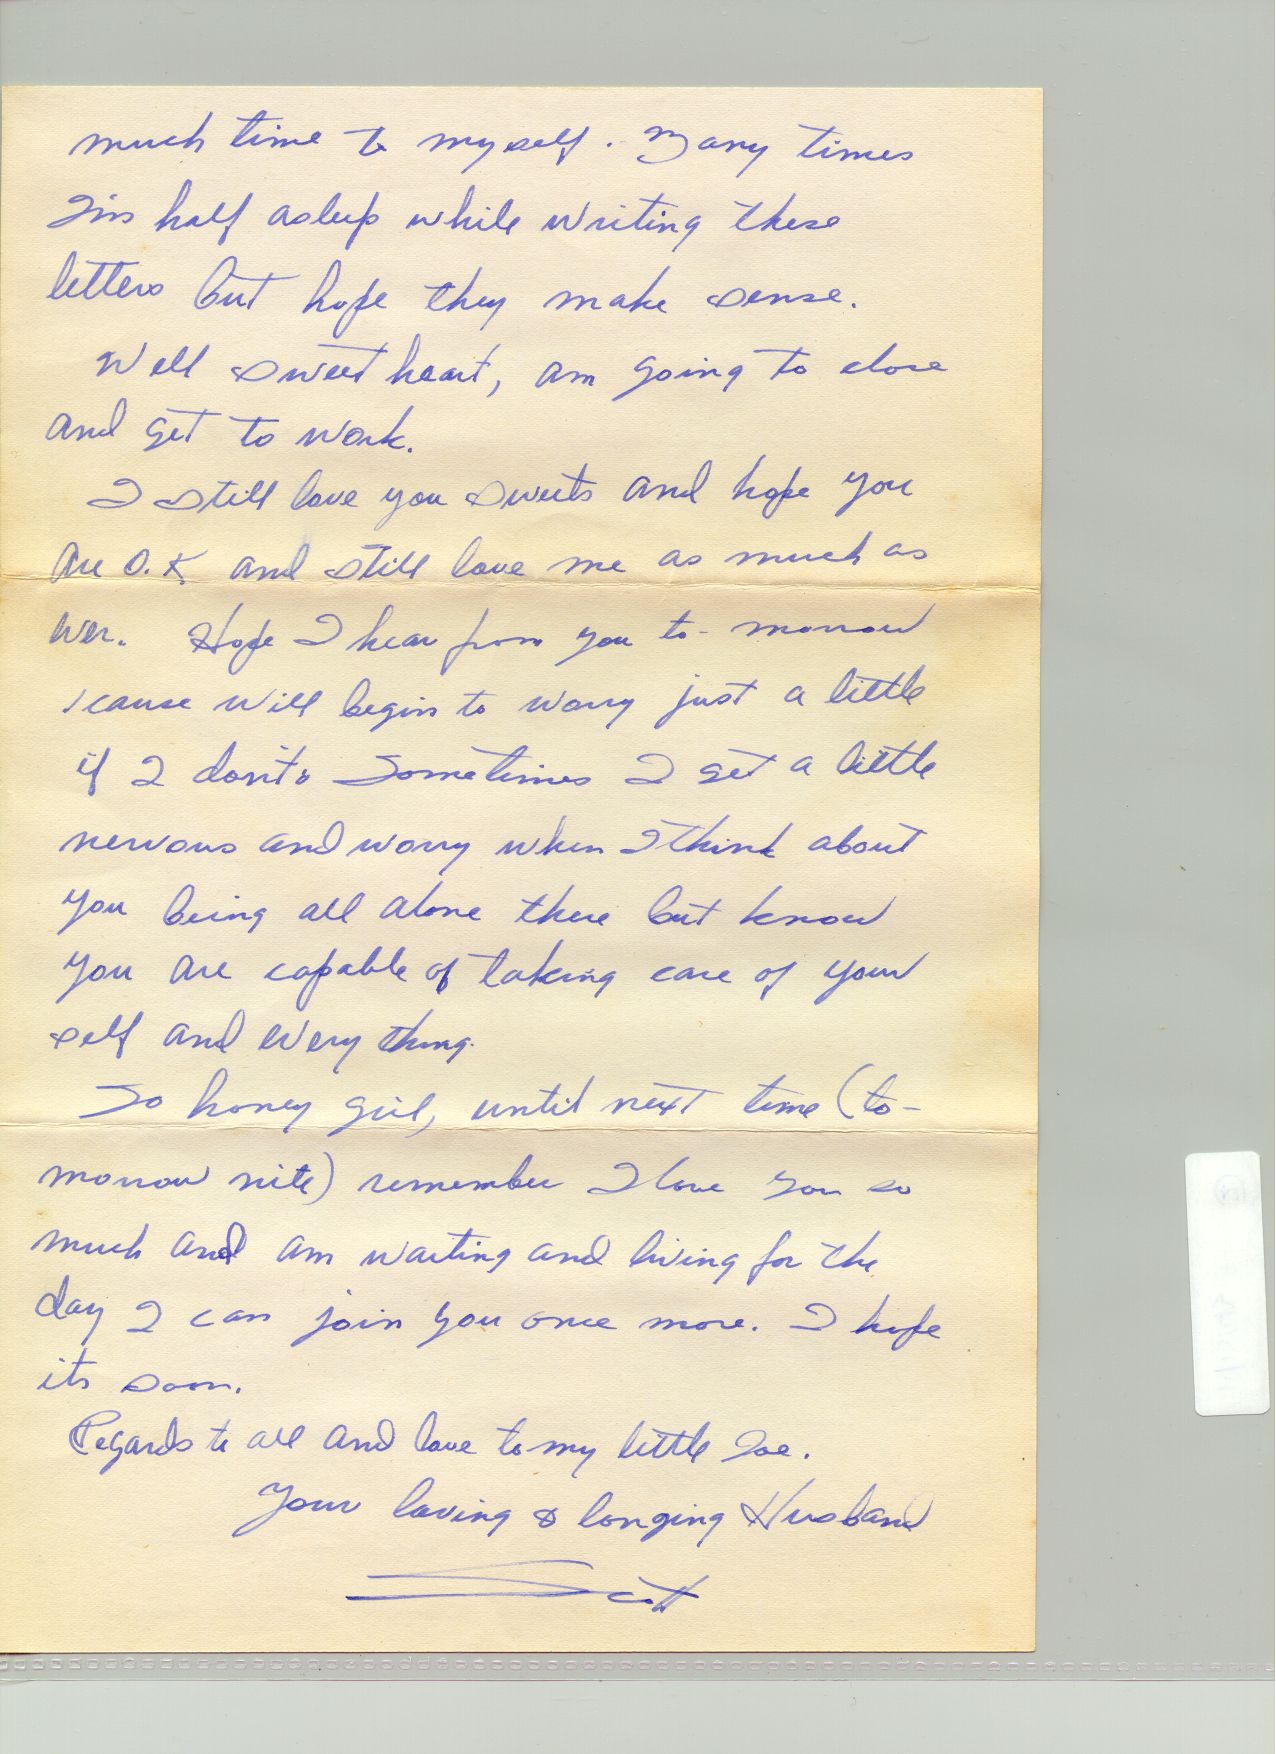 much time to myself. Many times
I'm half asleep while writing these
letters but hope they make sense.
Well sweet heart, am going to close
and get to work.
I still love you sweets and hope you
are O.K and still love me as much as
ever. Hope I hear from you to-morrow
'cause will begin to worry just a little
if I don't. Sometimes I get a little
nervous and worry when I think about
you being all alone there but know
you are capable of taking care of your
self and every thing.
So honey girl, until next time (to-
morrow nite) remember I love you so
much and am waiting and living for the
day I can join you once more. I hope
its soon.
Regards to all and love to my little Joe.
Your loving & longing Husband
Scott